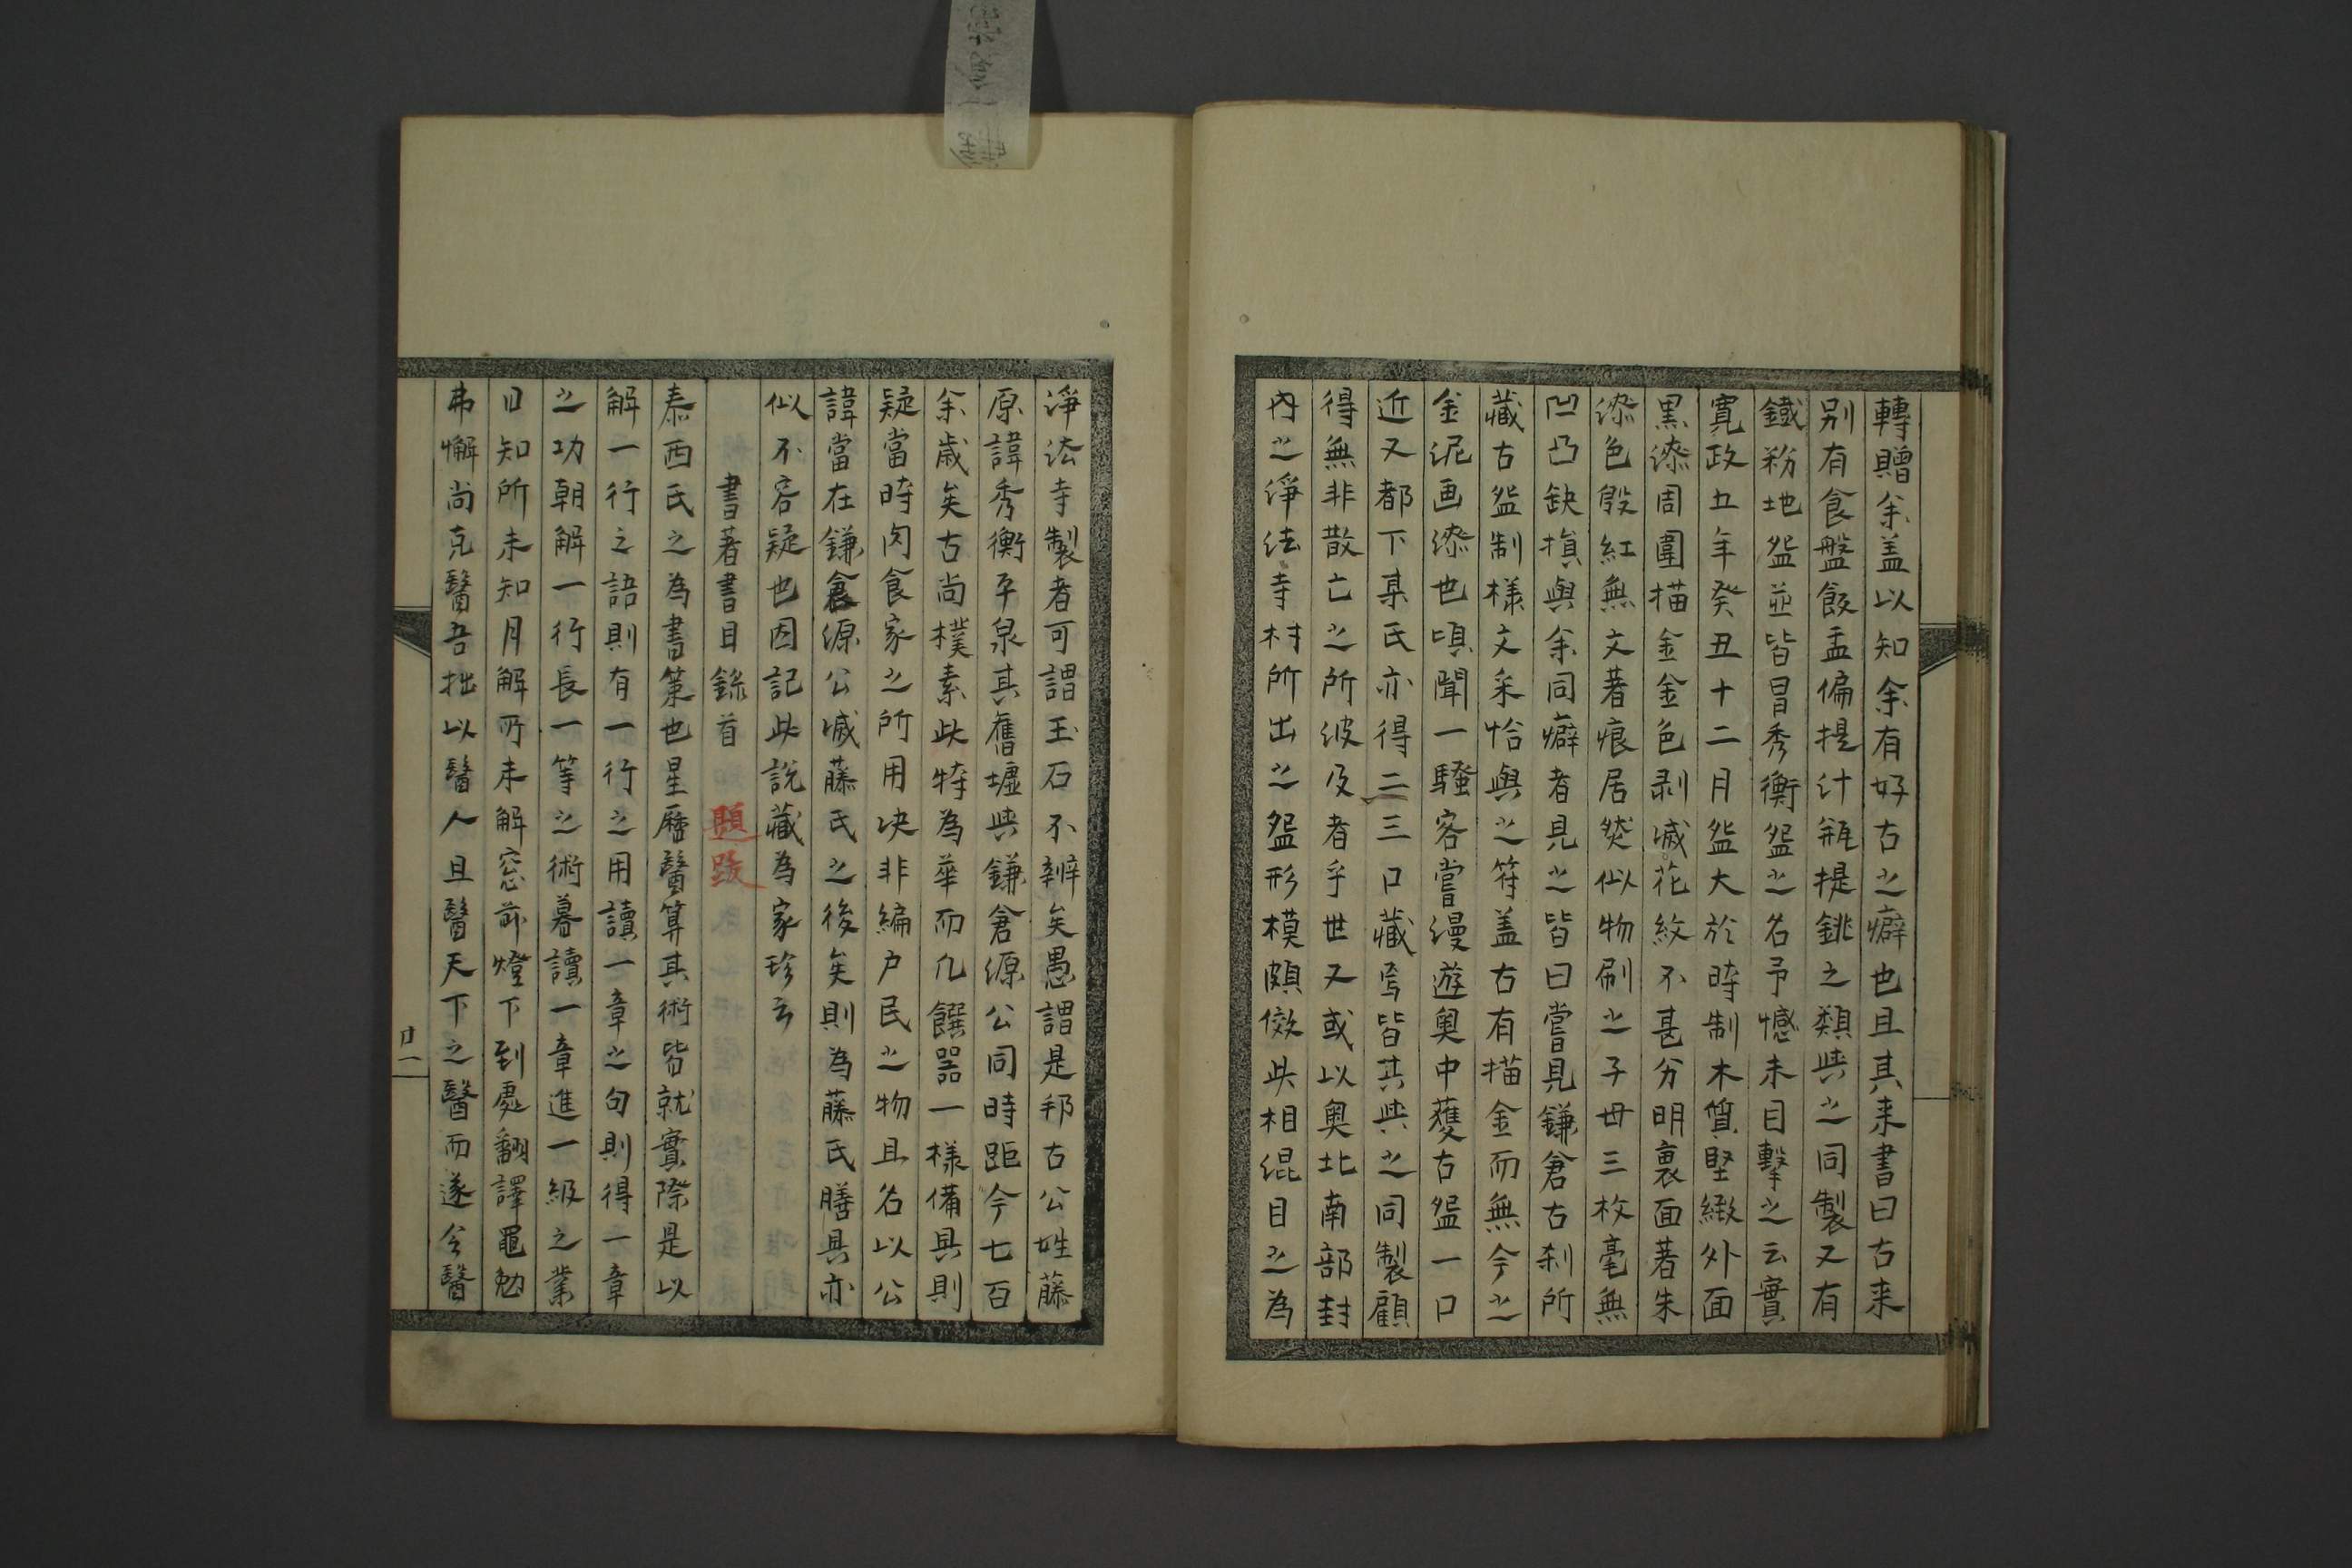 轉贈余盖以知余有好古之癖也且其来書曰古来
别有食盤飯盂偏提汁瓶提銚之類與之同製又有
鐵粉地盌並皆冒秀衡盌之名予憾未目擊之云實
寛政五年癸丑十二月盌大於時制木質堅緻外面
黒漆周圍描金金色剥滅花紋不甚分明裏面著朱
漆色殷紅無文著痕居然似物刷之子母三枚毫無
凹凸缺損與余同癖者見之皆曰嘗見鎌倉古刹所
藏古盌制様文采恰與之符盖古有描金而無今之
金泥画漆也頃聞一騷客嘗漫遊奥中獲古盌一口
近又都下某氏亦得二三口藏焉皆其與之同製顧
得無非散亡之所波及者乎世又或以奥北南部封
内之淨法寺村所出之盌形模頗倣此相混目之為
淨法寺製者可謂玉石不辨矣愚謂是邦古公姓藤
原諱秀衡平泉其舊墟與鎌倉源公同時距今七百
余歳矣古尚樸素此特為華而凡饌器一様備具則
疑當時肉食家之所用决非編户民之物且名以公
諱當在鎌倉源公滅藤氏之後矣則為藤氏膳具亦
似不容疑也因記此説藏為家珍云
書著書目錄首
題跋
泰西氏之為書策也星曆醫算其術皆就實際是以
解一行之語則有一行之用讀一章之句則得一章
之功朝解一行長一等之術暮讀一章進一級之業
日知所未知月解所未解窓前燈下到處翻譯黽勉
弗懈尚克醫吾拙以醫人且醫天下之醫而遂令醫
廿一